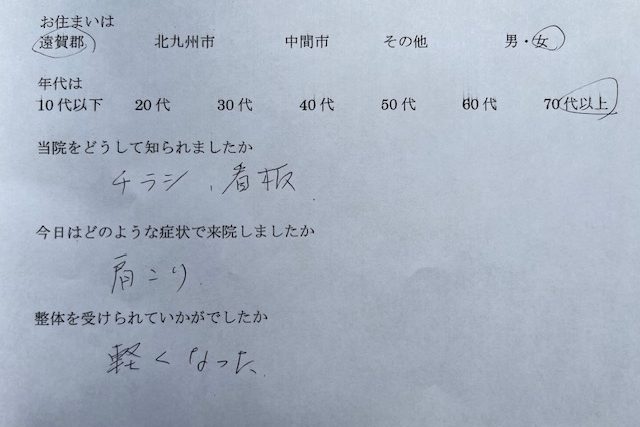 お住まいは
遠賀郡 北九州市 中間市 その他 男・女
年代は
10代以下 20代 30代 40代 50代 60代 70代以上
当院をどうして知られましたか
チラシ、看板
今日はどのような症状で来院しましたか
肩こり
整体を受けられていかがでしたか
軽くなった